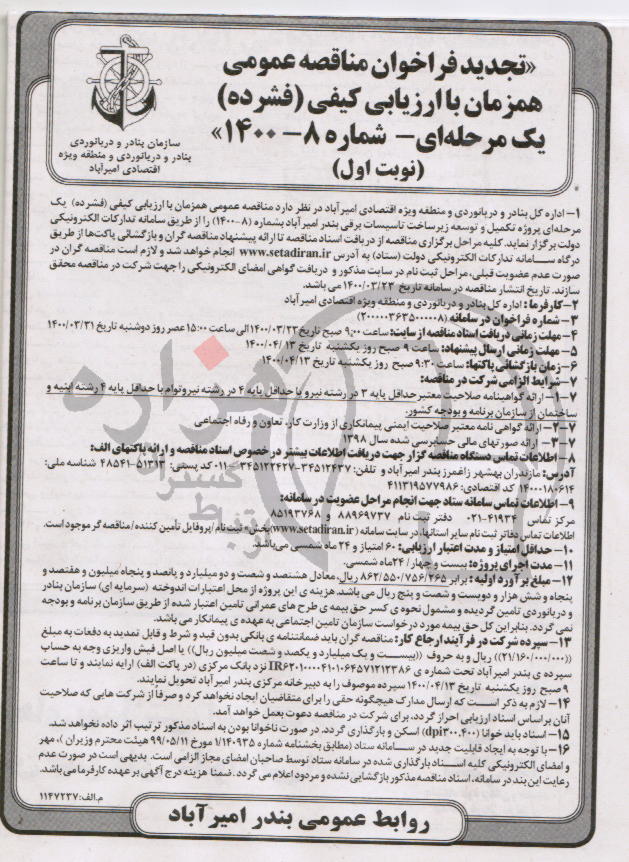 «تجدید فراخوان مناقصه عمومی
همزمان با ارزیابی کیفی (فشرده)
یک مرحله‌ای – شماره ۸-۱۴۰۰»
(نوبت اول)
سازمان بنادر و دریانوردی
بنادر و دریانوردی و منطقه ویژه
اقتصادی امیرآباد
۱- اداره کل بنادر و دریانوردی و منطقه ویژه اقتصادی امیرآباد در نظر دارد مناقصه عمومی همزمان با ارزیابی کیفی (فشرده) یک
مرحله‌ای پروژه تکمیل و توسعه زیرساخت تاسیسات برقی بندر امیرآباد بشماره (۸-۱۴۰۰) را از طریق سامانه تدارکات الکترونیکی
دولت برگزار نماید. کلیه مراحل برگزاری مناقصه از دریافت اسناد مناقصه تا ارائه پیشنهاد مناقصه گران و بازگشائی پاکت‌ها از طریق
درگاه سامانه تدارکات الکترونیکی دولت (ستاد) به آدرس www.setadiran.ir انجام خواهد شد و لازم است مناقصه گران در
صورت عدم عضویت قبلی، مراحل ثبت نام در سایت مذکور و دریافت گواهی امضای الکترونیکی را جهت شرکت در مناقصه محقق
سازند. تاریخ انتشار مناقصه در سامانه تاریخ ۱۴۰۰/۰۳/۲۳ می باشد.
۲- کارفرما: اداره کل بنادر و دریانوردی و منطقه ویژه اقتصادی امیرآباد
۳- شماره فراخوان در سامانه (۲۰۰۰۰۰۳۶۳۵۰۰۰۰۰۸)
۴- مهلت زمانی دریافت اسناد مناقصه از سایت: ساعت ۹:۰۰ صبح تاریخ ۱۴۰۰/۰۳/۲۳ الی ساعت ۱۵:۰۰ عصر روز دوشنبه تاریخ ۱۴۰۰/۰۳/۳۱
۵- مهلت زمانی ارسال پیشنهاد: ساعت ۹ صبح روز یکشنبه تاریخ ۱۴۰۰/۰۴/۱۳
۶- زمان بازگشائی پاکتها: ساعت ۹:۳۰ صبح روز یکشنبه تاریخ ۱۴۰۰/۰۴/۱۳
۷- شرایط الزامی شرکت در مناقصه:
۷-۱- ارائه گواهینامه صلاحیت معتبر حداقل پایه ۳ در رشته نیرو یا حداقل پایه ۴ در رشته نیرو توام با حداقل پایه ۴ رشته ابنیه و
ساختمان از سازمان برنامه و بودجه کشور.
۷-۲- ارائه گواهی نامه معتبر صلاحیت ایمنی پیمانکاری از وزارت کار، تعاون و رفاه اجتماعی
۷-۳- ارائه صورتهای مالی حسابرسی شده سال ۱۳۹۸
۸- اطلاعات تماس دستگاه مناقصه گزار جهت دریافت اطلاعات بیشتر در خصوص اسناد مناقصه و ارائه پاکتهای الف:
آدرس: مازندران بهشهر زاغمرز بندر امیرآباد و تلفن: ۳۴۵۱۲۴۳۷-۳۴۵۱۲۲۴۲۷-۰۱۱ کد پستی: ۵۱۳۱۳-۴۸۵۴۱ شناسه ملی:
۱۴۰۰۰۱۸۰۶۱۴ کد اقتصادی: ۴۱۱۳۱۹۵۷۷۹۸۶
۹- اطلاعات تماس سامانه ستاد جهت انجام مراحل عضویت در سامانه:
مرکز تماس ۴۱۹۳۴-۰۲۱ دفتر ثبت نام ۸۸۹۶۹۷۳۷ و ۸۵۱۹۳۷۶۸
اطلاعات تماس دفاتر ثبت نام سایر استانها، در سایت سامانه (www.setadiran.ir) بخش «ثبت نام/پروفایل تأمین کننده/مناقصه گر موجود است.
۱۰- حداقل امتیاز و مدت اعتبار ارزیابی: ۶۰ امتیاز و ۲۴ ماه شمسی می‌باشد.
۱۱- مدت اجرای پروژه: بیست و چهار/ ۲۴ ماه شمسی.
۱۲- مبلغ برآورد اولیه: برابر ۸۶۲/۵۵۰/۷۵۶/۲۶۵ ریال، معادل هشتصد و شصت و دو میلیارد و پانصد و پنجاه میلیون و هفتصد و
پنجاه و شش هزار و دویست و شصت و پنج ریال می باشد. هزینه ی این پروژه از محل اعتبارات اندوخته (سرمایه ای) سازمان بنادر
و دریانوردی تامین گردیده و مشمول نحوه ی کسر حق بیمه ی طرح های عمرانی تامین اعتبار شده از طریق سازمان برنامه و بودجه
نمی گردد. بنابراین کل حق بیمه مورد درخواست سازمان تامین اجتماعی به عهده ی پیمانکار می باشد.
۱۳- سپرده شرکت در فرآیند ارجاع کار: مناقصه گران باید ضمانتنامه ی بانکی بدون قید و شرط و قابل تمدید به دفعات به مبلغ
((۲۱/۱۶۰/۰۰۰/۰۰۰)) ریال و به حروف ((بیست و یک میلیارد و یکصد و شصت میلیون ریال)) یا اصل فیش واریزی وجه به حساب
سپرده ی بندر امیرآباد تحت شماره ی IR۶۲۰۱۰۰۰۰۴۱۰۱۰۶۴۵۷۱۲۱۲۳۸۶ نزد بانک مرکزی (در پاکت الف) ارایه نمایند و تا ساعت
۹ صبح روز یکشنبه تاریخ ۱۴۰۰/۰۴/۱۳ سپرده موصوف را به دبیرخانه مرکزی بندر امیرآباد تحویل نمایند.
۱۴- لازم به ذکر است که ارسال مدارک هیچگونه حقی را برای متقاضیان ایجاد نخواهد کرد و صرفاً از شرکت هایی که صلاحیت
آنان براساس اسناد ارزیابی احراز گردد، برای شرکت در مناقصه دعوت بعمل خواهد آمد.
۱۵- اسناد باید خوانا (dpi۳۰۰،۴۰۰) اسکن و بارگذاری گردد. در صورت ناخوانا بودن به اسناد مذکور ترتیب اثر داده نخواهد شد.
۱۶- با توجه به ایجاد قابلیت جدید در سامانه ستاد (مطابق بخشنامه شماره ۱/۱۴۰۹۳۵ مورخ ۹۹/۰۵/۱۱ هیئت محترم وزیران)، مهر
و امضای الکترونیکی کلیه اسناد بارگذاری شده در سامانه ستاد توسط صاحبان امضای مجاز الزامی است. بدیهی است در صورت عدم
رعایت این بند در سامانه، اسناد مناقصه مذکور بازگشایی نشده و مردود اعلام می گردد. ضمنا هزینه درج آگهی بر عهده کارفرما می باشد.
م.الف: ۱۱۴۷۲۳۷
روابط عمومی بندر امیرآباد
هزاره